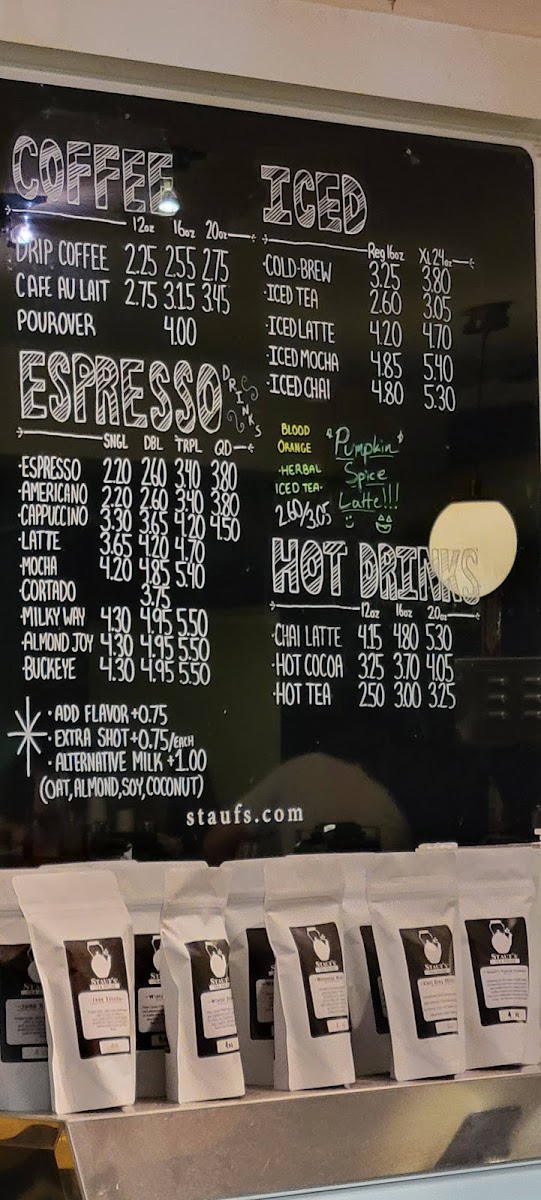 COFFEE
12oz 16oz 20oz
DRIP COFFEE 2.25 2.55 2.75
CAFE AU LAIT 2.75 3.15 3.45
POUROVER 4.00
ESPRESSO DRINKS
SNGL DBL TRPL QD
·ESPRESSO 2.20 2.60 3.40 3.80
·AMERICANO 2.20 2.60 3.40 3.80
·CAPPUCCINO 3.30 3.65 4.20 4.50
·LATTE 3.65 4.20 4.70
·MOCHA 4.20 4.85 5.40
·CORTADO 3.75
·MILKY WAY 4.30 4.95 5.50
·ALMOND JOY 4.30 4.95 5.50
·BUCKEYE 4.30 4.95 5.50
· ADD FLAVOR +0.75
· EXTRA SHOT +0.75/EACH
· ALTERNATIVE MILK +1.00
(OAT, ALMOND, SOY, COCONUT)
ICED
Reg 16oz XL 24oz
·COLD-BREW 3.25 3.80
·ICED TEA 2.60 3.05
·ICED LATTE 4.20 4.70
·ICED MOCHA 4.85 5.40
·ICED CHAI 4.80 5.30
BLOOD
ORANGE
·HERBAL
ICED TEA·
2.60/3.05
"Pumpkin"
Spice
Latte!!!
HOT DRINKS
12oz 16oz 20oz
·CHAI LATTE 4.15 4.80 5.30
·HOT COCOA 3.25 3.70 4.05
·HOT TEA 2.50 3.00 3.25
staufs.com
STAUF'S
STAUF'S
STAUF'S
STAUF'S
STAUF'S